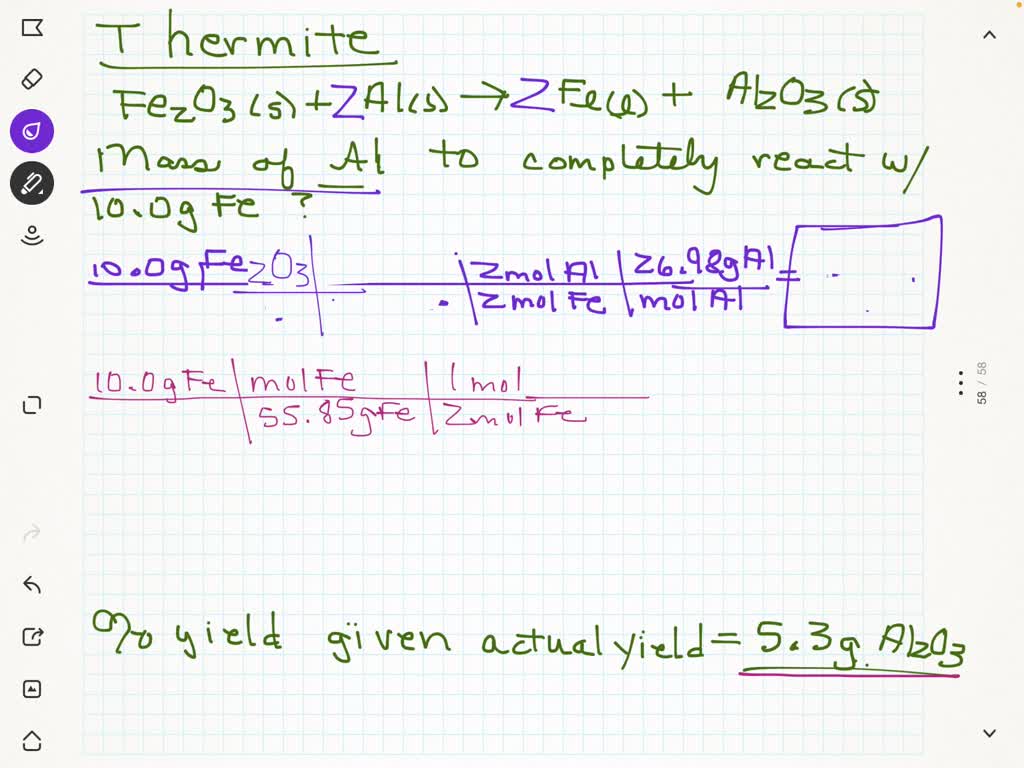 Thermite
Fe2O3(s) + 2Al(s) → 2Fe(l) + Al2O3(s)
Mass of Al to completely react w/
10.0g Fe ?
10.0g Fe2O3 | 2mol Al | 26.98g Al =
2mol Fe | mol Al
10.0g Fe | mol Fe | 1 mol
55.85g Fe | 2mol Fe
% yield given actual yield = 5.3g. Al2O3
58 / 58